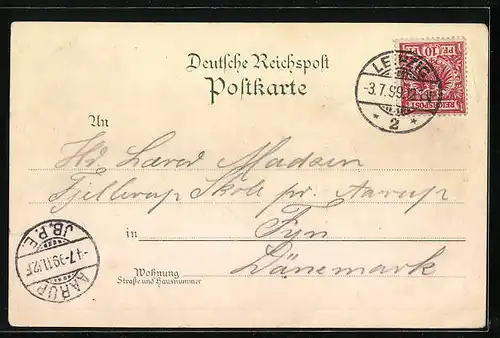 Deutsche Reichspost
Postkarte
LEIPZIG
-3.7.99.
* 2 *
PF. 10 PF.
REICHSPOST
An
Hr. Lærer Madsen
Fjellerup Skole pr. Aarup
in Fyn
Dänemark
Wohnung
Straße und Hausnummer
AARUP
JB.P.E.
-4.7-99